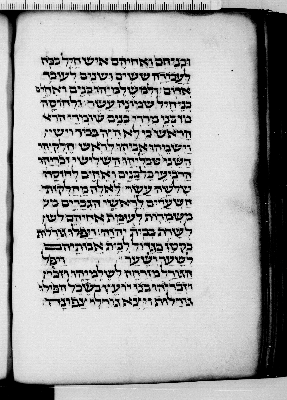 ובניהם ואחיהם איש חיל בכח
לעבודה ששים ושנים לעובד
אדום ולמשלמיהו בנים ואחים
בני חיל שמונה עשר ולחוסה
מן בני מררי בנים שומרי הרא
הראש כי לא היה בכור וישי
וישימהו אביהו לראש חלקיהו
השני טבליהו השלישי זכריהו
הרביעי כל בנים ואחים לחוסה
שלשה עשר לאלה מחלקות
השערים לראשי הגברים מש
משמרות לעמת אחיהם לשר
לשרת בבית יהוה ויפלו גורלות
כקטן כגדול לבית אבותיהם
לשער ושער ויפל
הגורל מזרחה לשלמיהו וזכרי
וזכריהו בנו יועץ בשכל הפילו
גורלות ויוצא גורלו צפונה